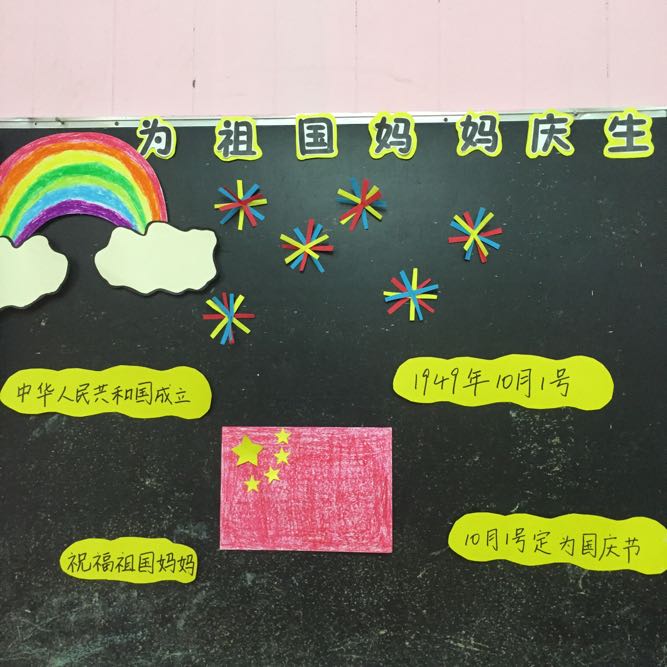 为祖国妈妈庆生
中华人民共和国成立
1949年10月1号
祝福祖国妈妈
10月1号定为国庆节